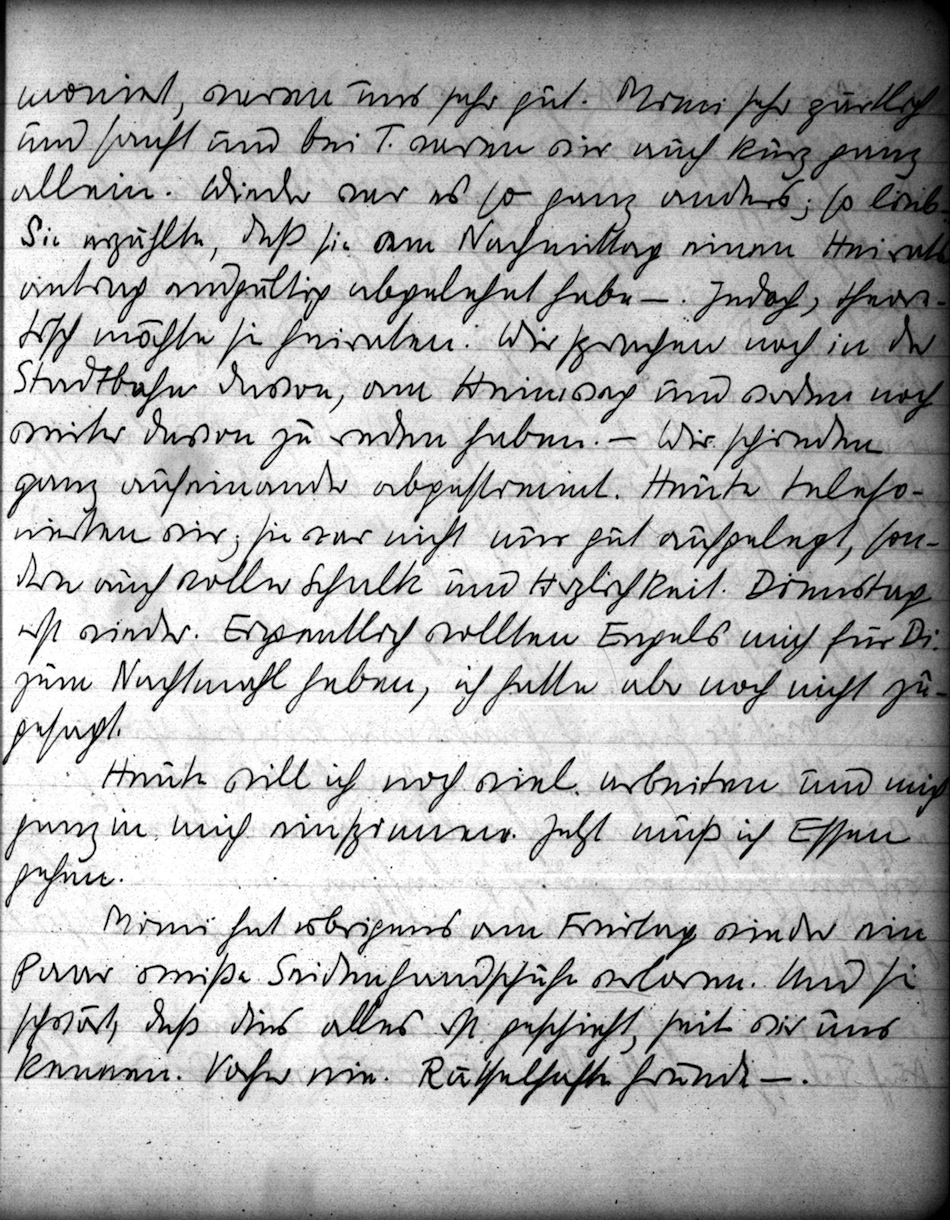 moniert, waren uns sehr gut. Mimi sehr zärtlich
und sanft und bei T. waren wir auch kurz ganz
allein. Wieder war es so ganz anders; so lieb.
Sie erzählte, daß sie am Nachmittag einen Heirats-
antrag endgültig abgelehnt habe —. Jedoch, theore-
tisch möchte sie heiraten. Wir sprachen noch in der
Stadtbahn davon, am Heimweg und werden noch
weiter davon zu reden haben. — Wir schieden
ganz aufeinander abgestimmt. Heute telefo-
nierten wir; sie war nicht nur gut aufgelegt, son-
dern auch voller Schalk und Herzlichkeit. Dienstag
erst wieder. Eigentlich wollten Engels mich für Di.
zum Nachtmahl haben, ich hatte aber noch nicht zu-
gesagt.
Heute will ich noch viel arbeiten und mich
ganz in mich einspinnen. Jetzt muß ich Essen
gehen.
Mimi hat übrigens am Freitag wieder ein
Paar weiße Seidenhandschuhe verloren. Und sie
schwört, daß dies alles erst geschieht, seit wir uns
kennen. Vorher nie. Rätselhafte Gründe —.